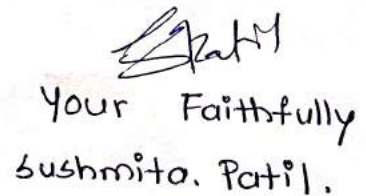 SPatil
Your Faithfully
sushmita. Patil.